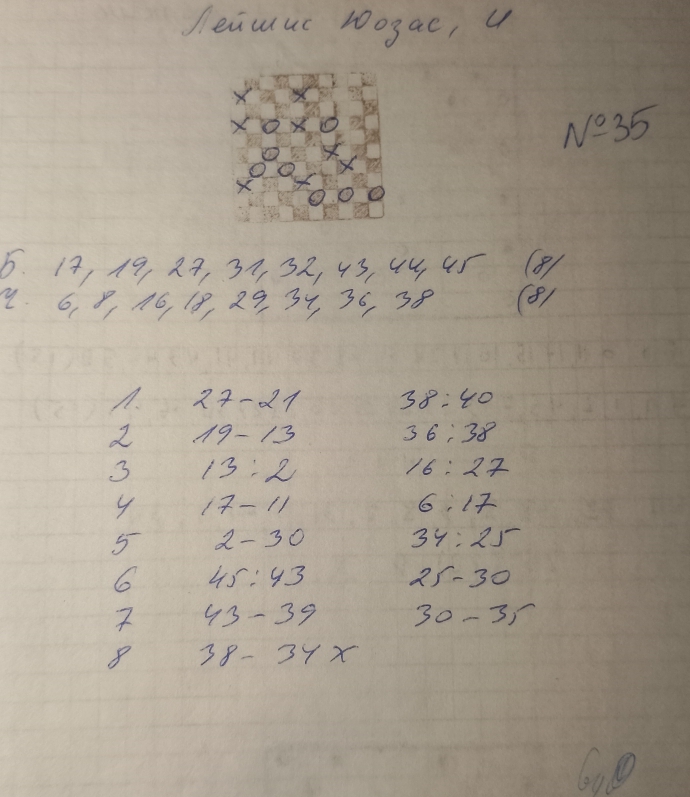 Лейшис Юозас, И
№35
Б. 17, 19, 27, 31, 32, 43, 44, 45 (8)
Ч. 6, 8, 16, 18, 29, 34, 36, 38 (8)
1. 27-21 38:40
2 19-13 36:38
3 13:2 16:27
4 17-11 6:17
5 2-30 34:25
6 45:43 25-30
7 43-39 30-35
8 38-34 x